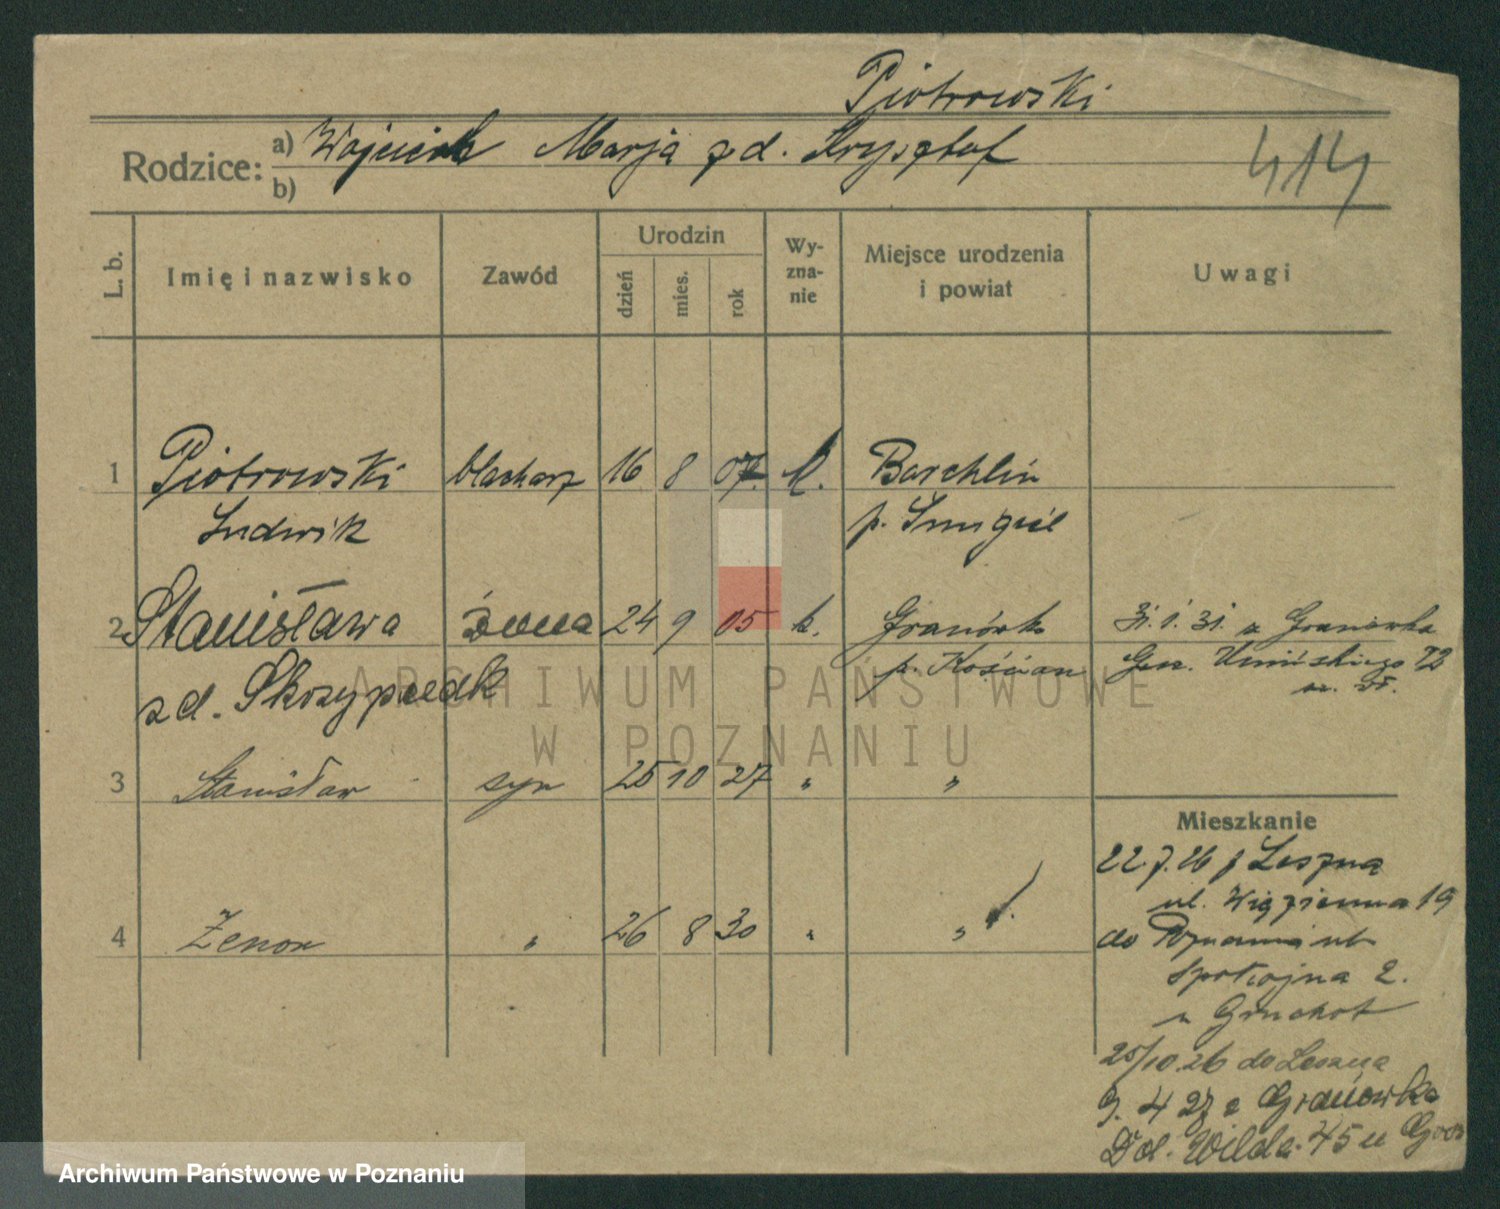 Piotrowski
Rodzice: a) Wojciech Marja z d. Krysztof
b)
414
L. b. Imię i nazwisko Zawód Urodzin dzień mies. rok Wy-zna-nie Miejsce urodzenia i powiat Uwagi
1 Piotrowski blacharz 16 8 07. k. Barchlin
Ludwik p. Śmigiel
2 Stanisława żona 24 9 05 k. Granówko 31.1.31. z Granówka
zd. Skrzypczak p. Kościan Gen. Umińskiego 72
3 Stanisław syn 25 10 27 " "
Mieszkanie
22.7.26 z Leszna
ul. Więzienna 19
4 Zenon " 26 8 30 " "
do Poznania ul.
Spokojna 2.
u Gruchot
25/10.26 do Leszna
9. 4 27 z Granówka
Dol. Wilda. 45 u
ARCHIWUM PAŃSTWOWE
W POZNANIU
Archiwum Państwowe w Poznaniu